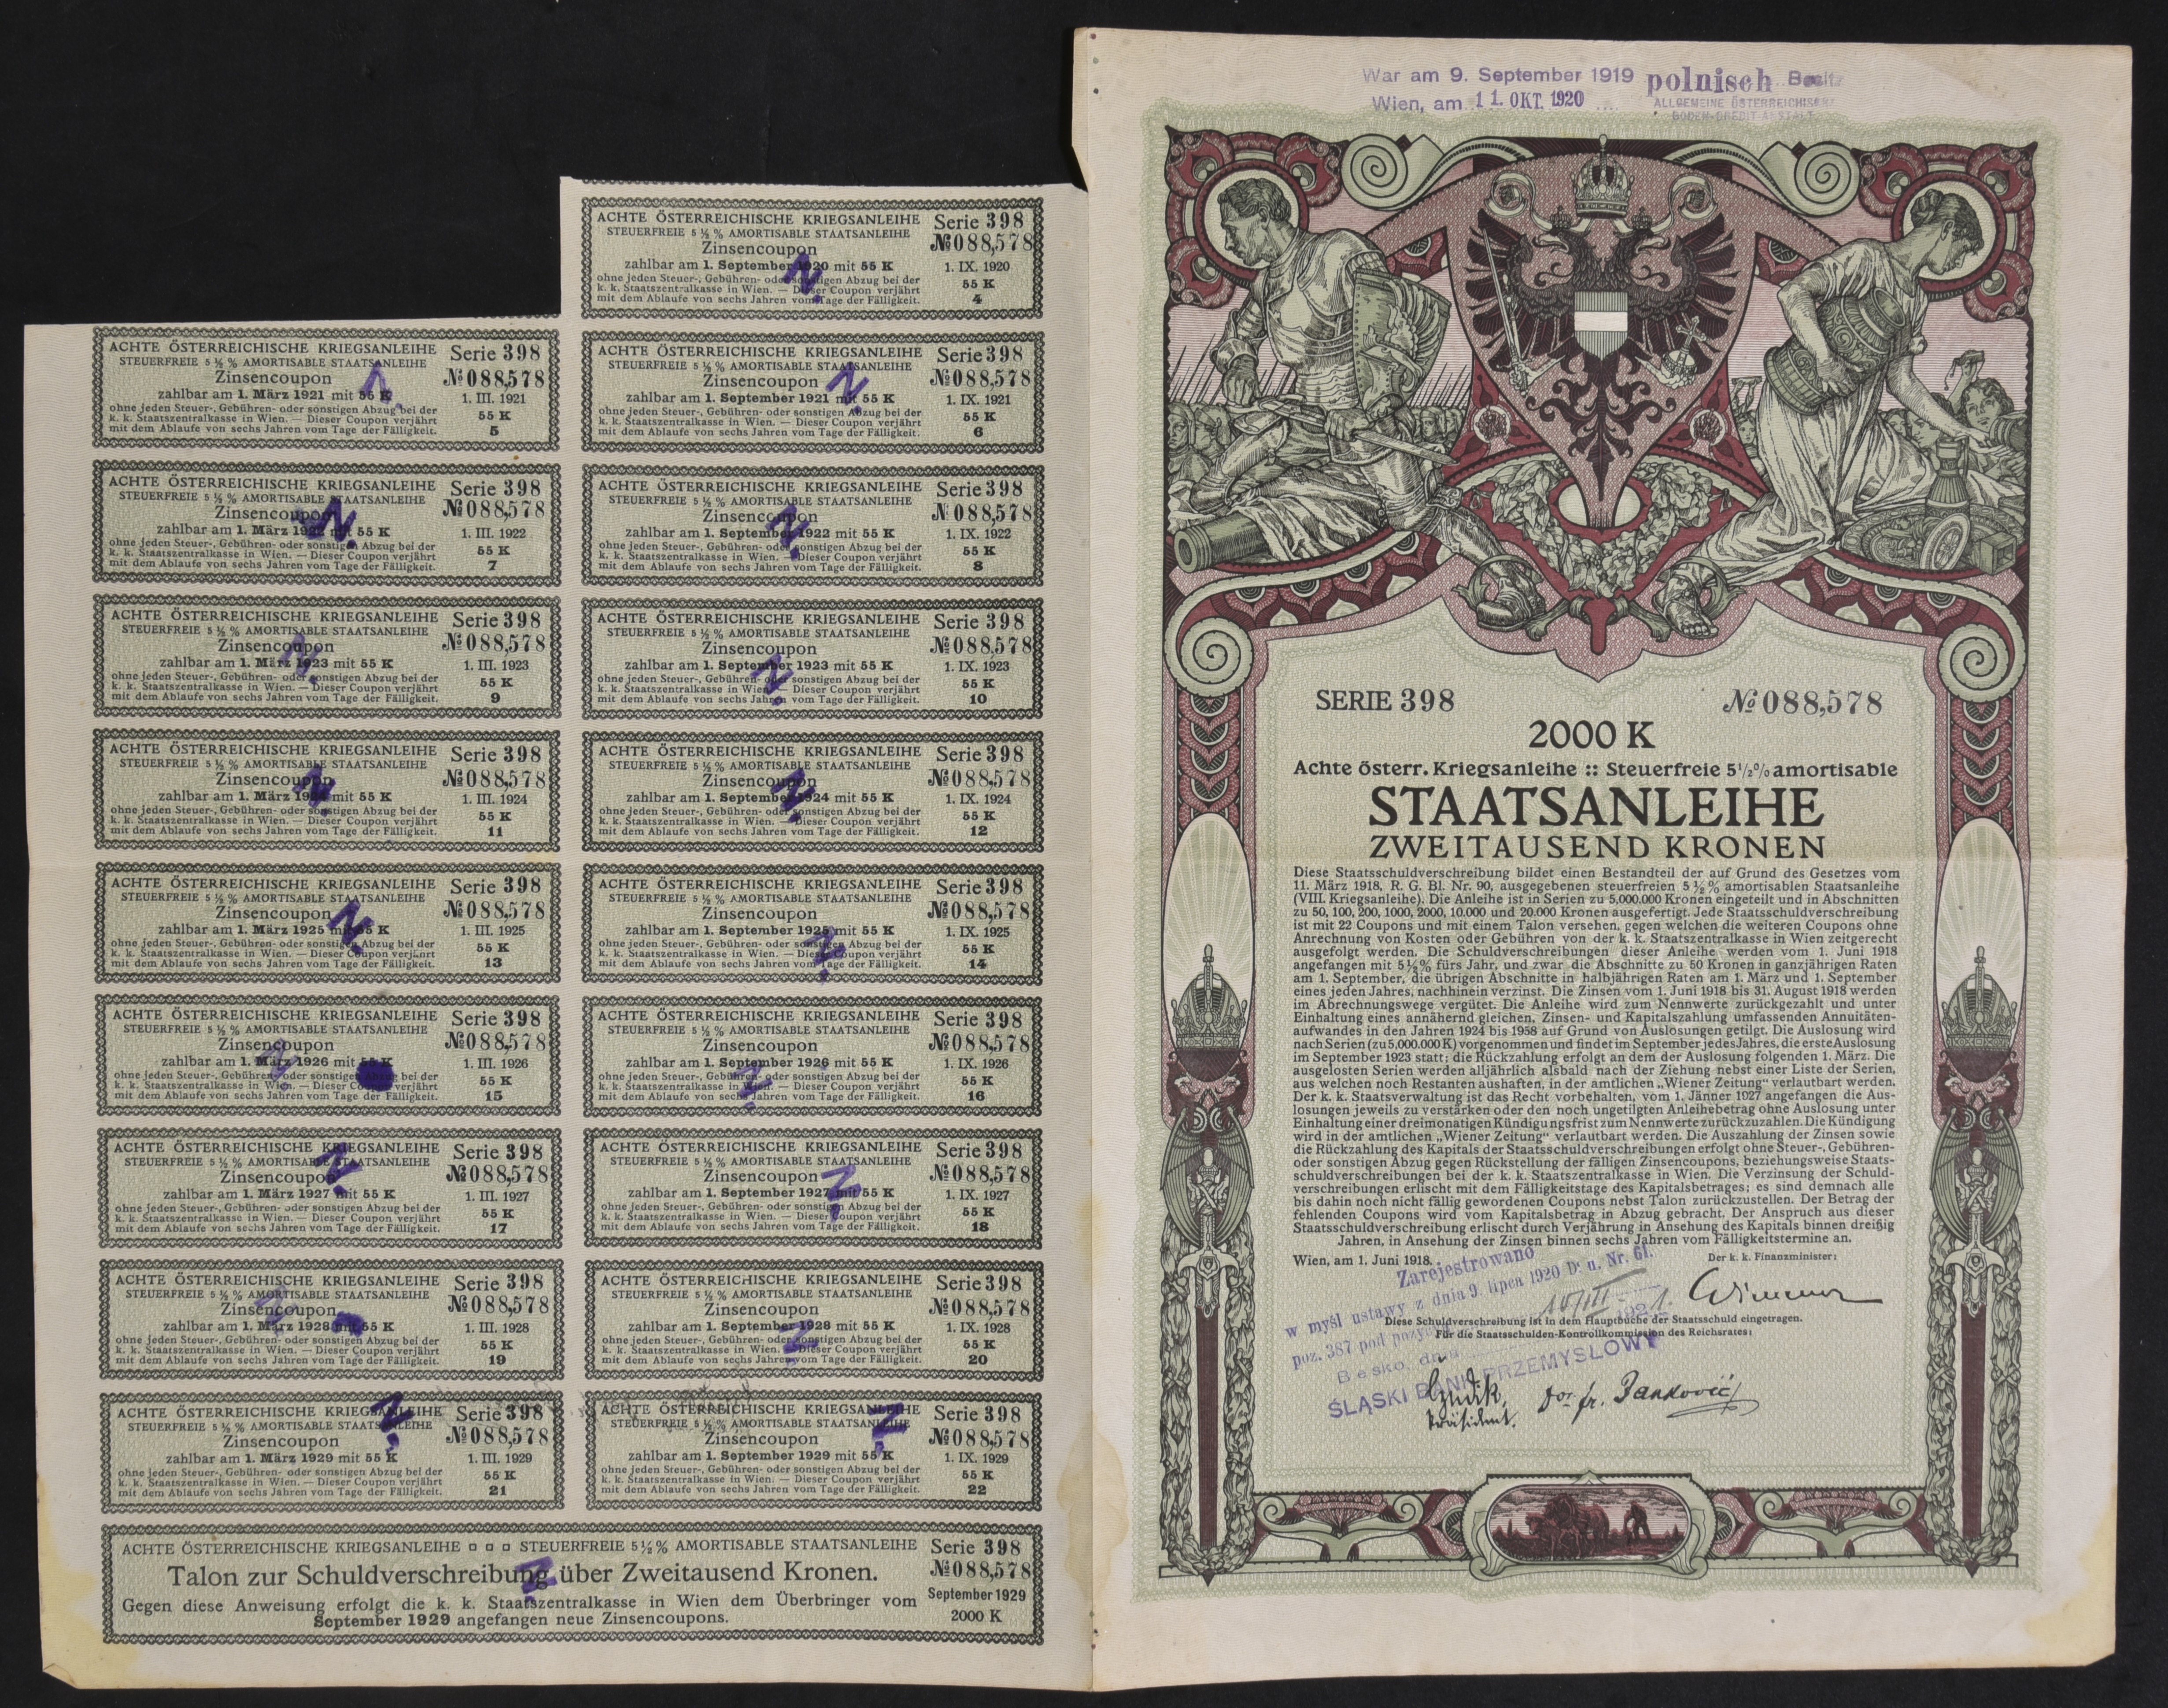 ACHTE ÖSTERREICHISCHE KRIEGSANLEIHE Serie 398
STEUERFREIE 5 ½ % AMORTISABLE STAATSANLEIHE № 088,578
Zinsencoupon
zahlbar am 1. September 1920 mit 55 K 1. IX. 1920
ohne jeden Steuer-, Gebühren- oder sonstigen Abzug bei der 55 K
k. k. Staatszentralkasse in Wien. — Dieser Coupon verjährt
mit dem Ablaufe von sechs Jahren vom Tage der Fälligkeit. 4
ACHTE ÖSTERREICHISCHE KRIEGSANLEIHE Serie 398
STEUERFREIE 5 ½ % AMORTISABLE STAATSANLEIHE
Zinsencoupon № 088,578
zahlbar am 1. März 1921 mit 55 K 1. III. 1921
ohne jeden Steuer-, Gebühren- oder sonstigen Abzug bei der 55 K
k. k. Staatszentralkasse in Wien. — Dieser Coupon verjährt
mit dem Ablaufe von sechs Jahren vom Tage der Fälligkeit. 5
ACHTE ÖSTERREICHISCHE KRIEGSANLEIHE Serie 398
STEUERFREIE 5 ½ % AMORTISABLE STAATSANLEIHE
Zinsencoupon № 088,578
zahlbar am 1. September 1921 mit 55 K 1. IX. 1921
ohne jeden Steuer-, Gebühren- oder sonstigen Abzug bei der 55 K
k. k. Staatszentralkasse in Wien. — Dieser Coupon verjährt
mit dem Ablaufe von sechs Jahren vom Tage der Fälligkeit. 6
ACHTE ÖSTERREICHISCHE KRIEGSANLEIHE Serie 398
STEUERFREIE 5 ½ % AMORTISABLE STAATSANLEIHE
Zinsencoupon № 088,578
zahlbar am 1. März 1922 mit 55 K 1. III. 1922
ohne jeden Steuer-, Gebühren- oder sonstigen Abzug bei der 55 K
k. k. Staatszentralkasse in Wien. — Dieser Coupon verjährt
mit dem Ablaufe von sechs Jahren vom Tage der Fälligkeit. 7
ACHTE ÖSTERREICHISCHE KRIEGSANLEIHE Serie 398
STEUERFREIE 5 ½ % AMORTISABLE STAATSANLEIHE
Zinsencoupon № 088,578
zahlbar am 1. September 1922 mit 55 K 1. IX. 1922
ohne jeden Steuer-, Gebühren- oder sonstigen Abzug bei der 55 K
k. k. Staatszentralkasse in Wien. — Dieser Coupon verjährt
mit dem Ablaufe von sechs Jahren vom Tage der Fälligkeit. 8
ACHTE ÖSTERREICHISCHE KRIEGSANLEIHE Serie 398
STEUERFREIE 5 ½ % AMORTISABLE STAATSANLEIHE
Zinsencoupon № 088,578
zahlbar am 1. März 1923 mit 55 K 1. III. 1923
ohne jeden Steuer-, Gebühren- oder sonstigen Abzug bei der 55 K
k. k. Staatszentralkasse in Wien. — Dieser Coupon verjährt
mit dem Ablaufe von sechs Jahren vom Tage der Fälligkeit. 9
ACHTE ÖSTERREICHISCHE KRIEGSANLEIHE Serie 398
STEUERFREIE 5 ½ % AMORTISABLE STAATSANLEIHE
Zinsencoupon № 088,578
zahlbar am 1. September 1923 mit 55 K 1. IX. 1923
ohne jeden Steuer-, Gebühren- oder sonstigen Abzug bei der 55 K
k. k. Staatszentralkasse in Wien. — Dieser Coupon verjährt
mit dem Ablaufe von sechs Jahren vom Tage der Fälligkeit. 10
ACHTE ÖSTERREICHISCHE KRIEGSANLEIHE Serie 398
STEUERFREIE 5 ½ % AMORTISABLE STAATSANLEIHE
Zinsencoupon № 088,578
zahlbar am 1. März 1924 mit 55 K 1. III. 1924
ohne jeden Steuer-, Gebühren- oder sonstigen Abzug bei der 55 K
k. k. Staatszentralkasse in Wien. — Dieser Coupon verjährt
mit dem Ablaufe von sechs Jahren vom Tage der Fälligkeit. 11
ACHTE ÖSTERREICHISCHE KRIEGSANLEIHE Serie 398
STEUERFREIE 5 ½ % AMORTISABLE STAATSANLEIHE
Zinsencoupon № 088,578
zahlbar am 1. September 1924 mit 55 K 1. IX. 1924
ohne jeden Steuer-, Gebühren- oder sonstigen Abzug bei der 55 K
k. k. Staatszentralkasse in Wien. — Dieser Coupon verjährt
mit dem Ablaufe von sechs Jahren vom Tage der Fälligkeit. 12
ACHTE ÖSTERREICHISCHE KRIEGSANLEIHE Serie 398
STEUERFREIE 5 ½ % AMORTISABLE STAATSANLEIHE
Zinsencoupon № 088,578
zahlbar am 1. März 1925 mit 55 K 1. III. 1925
ohne jeden Steuer-, Gebühren- oder sonstigen Abzug bei der 55 K
k. k. Staatszentralkasse in Wien. — Dieser Coupon verjährt
mit dem Ablaufe von sechs Jahren vom Tage der Fälligkeit. 13
ACHTE ÖSTERREICHISCHE KRIEGSANLEIHE Serie 398
STEUERFREIE 5 ½ % AMORTISABLE STAATSANLEIHE
Zinsencoupon № 088,578
zahlbar am 1. September 1925 mit 55 K 1. IX. 1925
ohne jeden Steuer-, Gebühren- oder sonstigen Abzug bei der 55 K
k. k. Staatszentralkasse in Wien. — Dieser Coupon verjährt
mit dem Ablaufe von sechs Jahren vom Tage der Fälligkeit. 14
ACHTE ÖSTERREICHISCHE KRIEGSANLEIHE Serie 398
STEUERFREIE 5 ½ % AMORTISABLE STAATSANLEIHE
Zinsencoupon № 088,578
zahlbar am 1. März 1926 mit 55 K 1. III. 1926
ohne jeden Steuer-, Gebühren- oder sonstigen Abzug bei der 55 K
k. k. Staatszentralkasse in Wien. — Dieser Coupon verjährt
mit dem Ablaufe von sechs Jahren vom Tage der Fälligkeit. 15
ACHTE ÖSTERREICHISCHE KRIEGSANLEIHE Serie 398
STEUERFREIE 5 ½ % AMORTISABLE STAATSANLEIHE
Zinsencoupon № 088,578
zahlbar am 1. September 1926 mit 55 K 1. IX. 1926
ohne jeden Steuer-, Gebühren- oder sonstigen Abzug bei der 55 K
k. k. Staatszentralkasse in Wien. — Dieser Coupon verjährt
mit dem Ablaufe von sechs Jahren vom Tage der Fälligkeit. 16
ACHTE ÖSTERREICHISCHE KRIEGSANLEIHE Serie 398
STEUERFREIE 5 ½ % AMORTISABLE STAATSANLEIHE
Zinsencoupon № 088,578
zahlbar am 1. März 1927 mit 55 K 1. III. 1927
ohne jeden Steuer-, Gebühren- oder sonstigen Abzug bei der 55 K
k. k. Staatszentralkasse in Wien. — Dieser Coupon verjährt
mit dem Ablaufe von sechs Jahren vom Tage der Fälligkeit. 17
ACHTE ÖSTERREICHISCHE KRIEGSANLEIHE Serie 398
STEUERFREIE 5 ½ % AMORTISABLE STAATSANLEIHE
Zinsencoupon № 088,578
zahlbar am 1. September 1927 mit 55 K 1. IX. 1927
ohne jeden Steuer-, Gebühren- oder sonstigen Abzug bei der 55 K
k. k. Staatszentralkasse in Wien. — Dieser Coupon verjährt
mit dem Ablaufe von sechs Jahren vom Tage der Fälligkeit. 18
ACHTE ÖSTERREICHISCHE KRIEGSANLEIHE Serie 398
STEUERFREIE 5 ½ % AMORTISABLE STAATSANLEIHE
Zinsencoupon № 088,578
zahlbar am 1. März 1928 mit 55 K 1. III. 1928
ohne jeden Steuer-, Gebühren- oder sonstigen Abzug bei der 55 K
k. k. Staatszentralkasse in Wien. — Dieser Coupon verjährt
mit dem Ablaufe von sechs Jahren vom Tage der Fälligkeit. 19
ACHTE ÖSTERREICHISCHE KRIEGSANLEIHE Serie 398
STEUERFREIE 5 ½ % AMORTISABLE STAATSANLEIHE
Zinsencoupon № 088,578
zahlbar am 1. September 1928 mit 55 K 1. IX. 1928
ohne jeden Steuer-, Gebühren- oder sonstigen Abzug bei der 55 K
k. k. Staatszentralkasse in Wien. — Dieser Coupon verjährt
mit dem Ablaufe von sechs Jahren vom Tage der Fälligkeit. 20
ACHTE ÖSTERREICHISCHE KRIEGSANLEIHE Serie 398
STEUERFREIE 5 ½ % AMORTISABLE STAATSANLEIHE
Zinsencoupon № 088,578
zahlbar am 1. März 1929 mit 55 K 1. III. 1929
ohne jeden Steuer-, Gebühren- oder sonstigen Abzug bei der 55 K
k. k. Staatszentralkasse in Wien. — Dieser Coupon verjährt
mit dem Ablaufe von sechs Jahren vom Tage der Fälligkeit. 21
ACHTE ÖSTERREICHISCHE KRIEGSANLEIHE Serie 398
STEUERFREIE 5 ½ % AMORTISABLE STAATSANLEIHE
Zinsencoupon № 088,578
zahlbar am 1. September 1929 mit 55 K 1. IX. 1929
ohne jeden Steuer-, Gebühren- oder sonstigen Abzug bei der 55 K
k. k. Staatszentralkasse in Wien. — Dieser Coupon verjährt
mit dem Ablaufe von sechs Jahren vom Tage der Fälligkeit. 22
ACHTE ÖSTERREICHISCHE KRIEGSANLEIHE □ □ □ STEUERFREIE 5 ½ % AMORTISABLE STAATSANLEIHE Serie 398
Talon zur Schuldverschreibung über Zweitausend Kronen. № 088,578
Gegen diese Anweisung erfolgt die k. k. Staatszentralkasse in Wien dem Überbringer vom September 1929
September 1929 angefangen neue Zinsencoupons. 2000 K
War am 9. September 1919 polnisch Besitz
Wien, am 11. OKT. 1920
ALLGEMEINE ÖSTERREICHISCHE
BODEN-CREDIT-ANSTALT
SERIE 398 № 088,578
2000 K
Achte österr. Kriegsanleihe :: Steuerfreie 5½% amortisable
STAATSANLEIHE
ZWEITAUSEND KRONEN
Diese Staatsschuldverschreibung bildet einen Bestandteil der auf Grund des Gesetzes vom
11. März 1918, R. G. Bl. Nr. 90, ausgegebenen steuerfreien 5 ½ % amortisablen Staatsanleihe
(VIII. Kriegsanleihe). Die Anleihe ist in Serien zu 5,000.000 Kronen eingeteilt und in Abschnitten
zu 50, 100, 200, 1000, 2000, 10.000 und 20.000 Kronen ausgefertigt. Jede Staatsschuldverschreibung
ist mit 22 Coupons und mit einem Talon versehen, gegen welchen die weiteren Coupons ohne
Anrechnung von Kosten oder Gebühren von der k. k. Staatszentralkasse in Wien zeitgerecht
ausgefolgt werden. Die Schuldverschreibungen dieser Anleihe werden vom 1. Juni 1918
angefangen mit 5½% fürs Jahr, und zwar die Abschnitte zu 50 Kronen in ganzjährigen Raten
am 1. September, die übrigen Abschnitte in halbjährigen Raten am 1. März und 1. September
eines jeden Jahres, nachhinein verzinst. Die Zinsen vom 1. Juni 1918 bis 31. August 1918 werden
im Abrechnungswege vergütet. Die Anleihe wird zum Nennwerte zurückgezahlt und unter
Einhaltung eines annähernd gleichen, Zinsen- und Kapitalszahlung umfassenden Annuitäten-
aufwandes in den Jahren 1924 bis 1958 auf Grund von Auslosungen getilgt. Die Auslosung wird
nach Serien (zu 5,000.000 K) vorgenommen und findet im September jedes Jahres, die erste Auslosung
im September 1923 statt; die Rückzahlung erfolgt an dem der Auslosung folgenden 1. März. Die
ausgelosten Serien werden alljährlich alsbald nach der Ziehung nebst einer Liste der Serien,
aus welchen noch Restanten aushaften, in der amtlichen „Wiener Zeitung“ verlautbart werden.
Der k. k. Staatsverwaltung ist das Recht vorbehalten, vom 1. Jänner 1927 angefangen die Aus-
losungen jeweils zu verstärken oder den noch ungetilgten Anleihebetrag ohne Auslosung unter
Einhaltung einer dreimonatigen Kündigungsfrist zum Nennwerte zurückzuzahlen. Die Kündigung
wird in der amtlichen „Wiener Zeitung“ verlautbart werden. Die Auszahlung der Zinsen sowie
die Rückzahlung des Kapitals der Staatsschuldverschreibungen erfolgt ohne Steuer-, Gebühren-
oder sonstigen Abzug gegen Rückstellung der fälligen Zinsencoupons, beziehungsweise Staats-
schuldverschreibungen bei der k. k. Staatszentralkasse in Wien. Die Verzinsung der Schuld-
verschreibungen erlischt mit dem Fälligkeitstage des Kapitalsbetrages; es sind demnach alle
bis dahin noch nicht fällig gewordenen Coupons nebst Talon zurückzustellen. Der Betrag der
fehlenden Coupons wird vom Kapitalsbetrag in Abzug gebracht. Der Anspruch aus dieser
Staatsschuldverschreibung erlischt durch Verjährung in Ansehung des Kapitals binnen dreißig
Jahren, in Ansehung der Zinsen binnen sechs Jahren vom Fälligkeitstermine an.
Wien, am 1. Juni 1918. Der k. k. Finanzminister:
Wimmer
Zarejestrowano
w myśl ustawy z dnia 9. lipca 1920 D. u. Nr. 61.
poz. 387 pod pozycją
Diese Schuldverschreibung ist in dem Hauptbuche der Staatsschuld eingetragen.
Für die Staatsschulden-Kontrollkommission des Reichsrates:
Besko, dnia 1921.
ŚLĄSKI BANK PRZEMYSŁOWY
Präsident. Dor fr. Janković